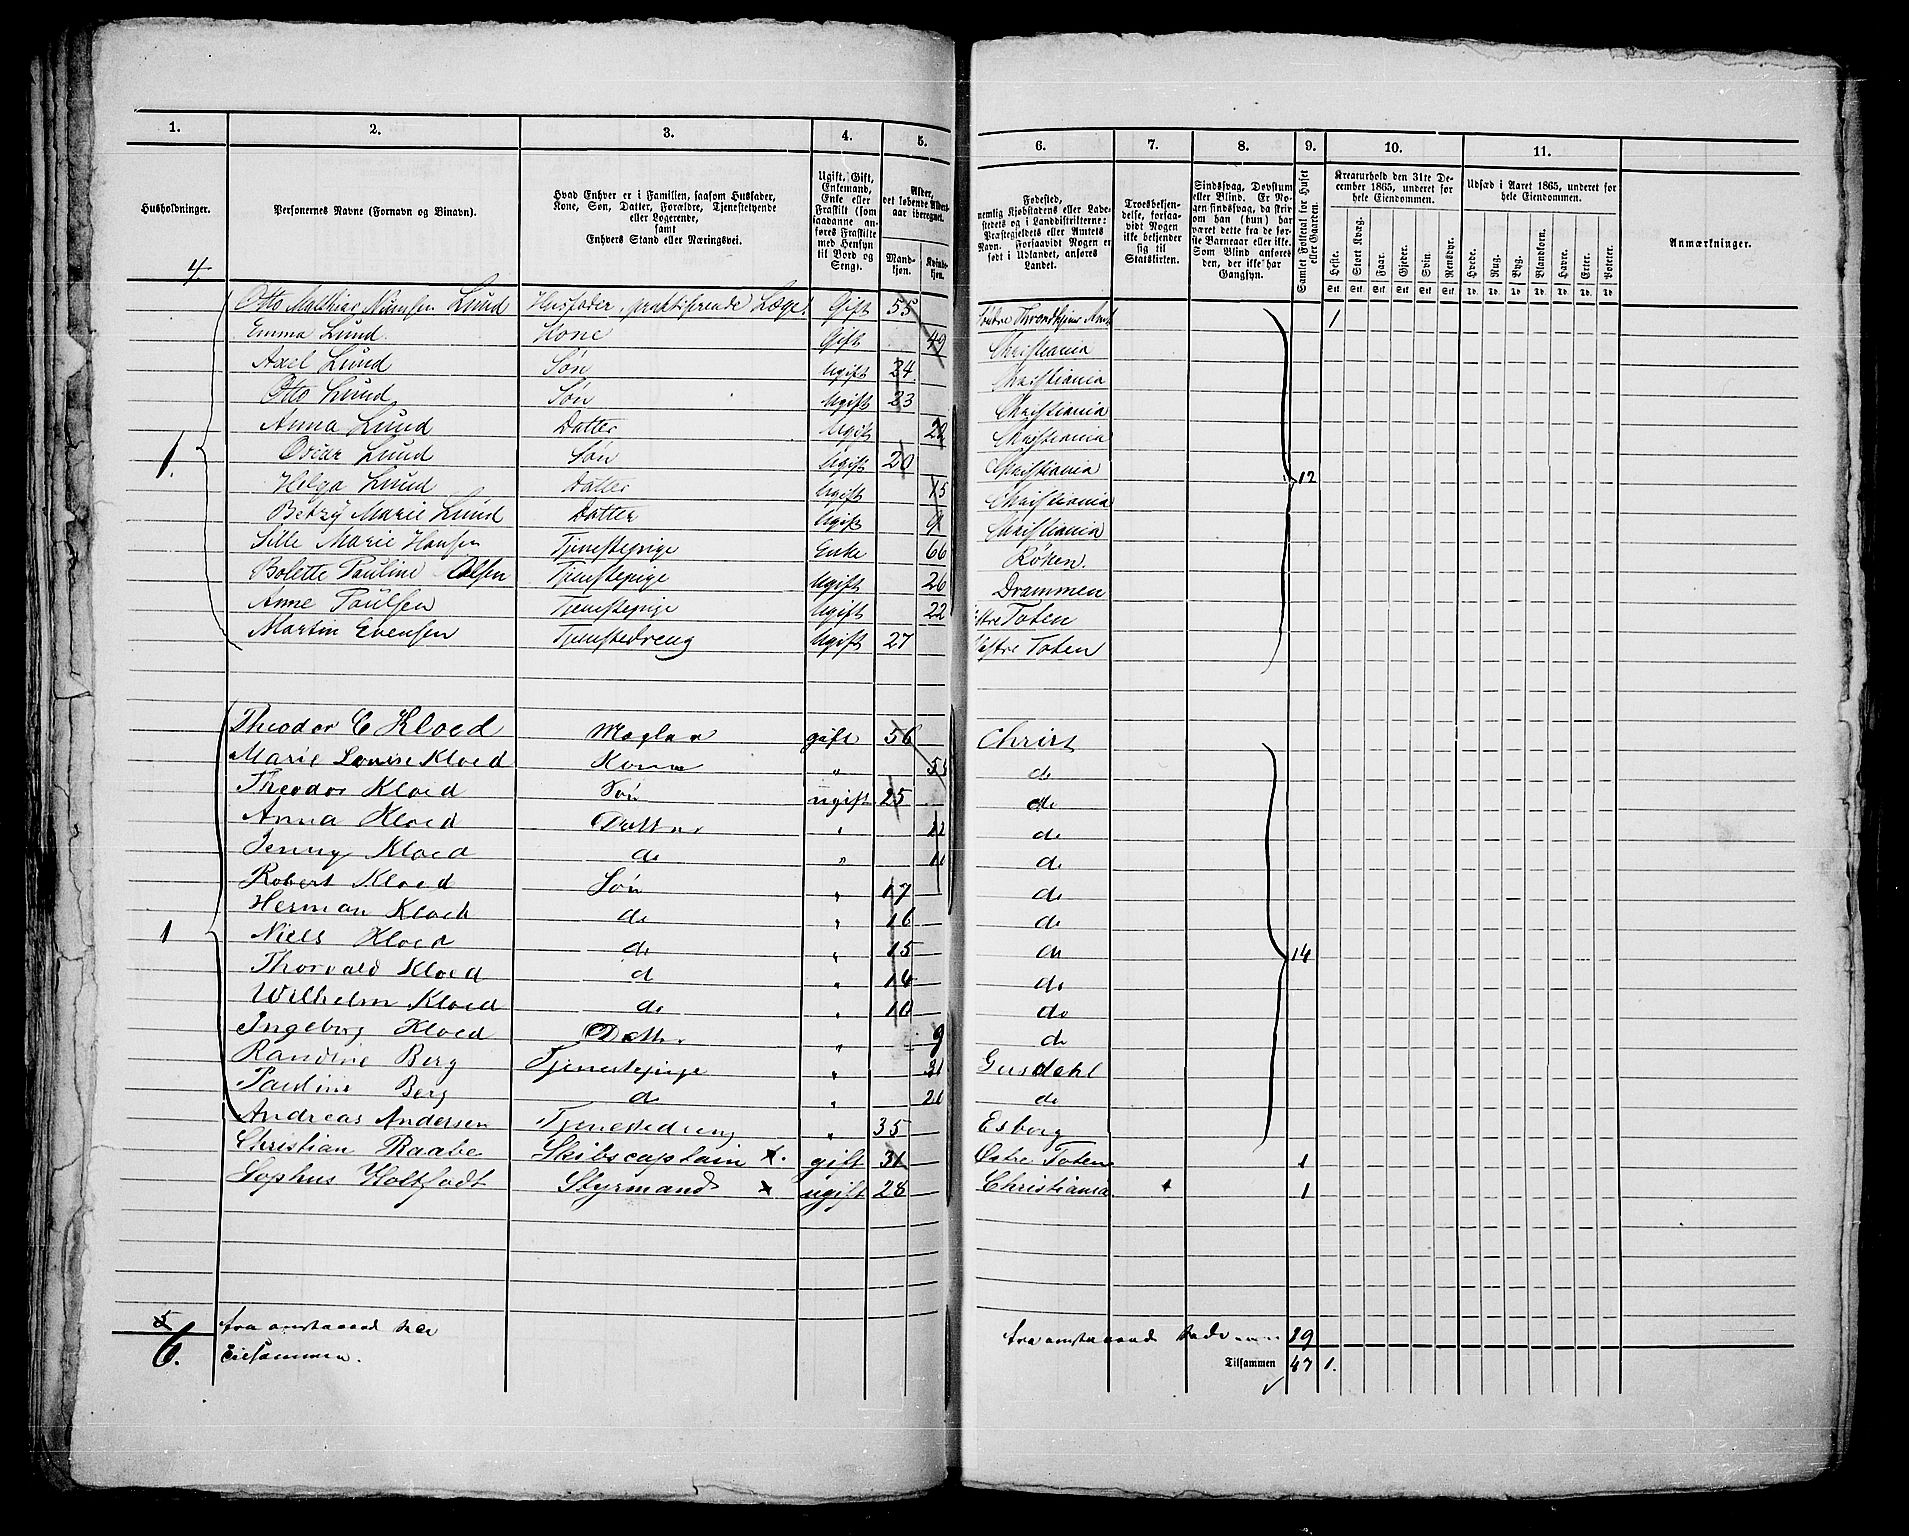 1. 2. 3. 4. 5. 6. 7. 8. 9. 10. 11.
Husholdninger.
Personernes Navne (Fornavn og Binavn).
Hvad Enhver er i Familien, saasom Husfader,
Kone, Søn, Datter, Forældre, Tjenestetyende
eller Logerende,
samt
Enhvers Stand eller Næringsvei.
Ugift, Gift,
Enkemand,
Enke eller
Fraskilt (som
saadanne an-
føres Fraskilte
med Hensyn
til Bord og
Seng).
Alder,
det løbende Alders-
aar iberegnet.
Mand-
kjøn.
Kvinde-
kjøn.
Fødested,
nemlig Kjøbstadens eller Lade-
stedets og i Landdistrikterne:
Præstegjeldets eller Amtets
Navn. Forsaavidt Nogen er
født i Udlandet, anføres
Landet.
Troesbekjen-
delse, forsaa-
vidt Nogen
ikke bekjender
sig til
Statskirken.
Sindssvag, Døvstum
eller Blind. Er No-
gen sindssvag, da skri-
ves om han (hun) har
været dette fra de før-
ste Barneaar eller ikke.
Som Blind anføres
den, der ikke har
Gangsyn.
Samlet Folketal for Huset
eller Gaarden.
Kreaturhold den 31te De-
cember 1865, underet for
hele Eiendommen.
Heste. Stort Kvæg. Faar. Gjeder. Svin. Rensdyr.
Stk. Stk. Stk. Stk. Stk. Stk.
Udsæd i Aaret 1865, underet for
hele Eiendommen.
Hvede. Rug. Byg. Blandkorn. Havre. Erter. Poteter.
Td. Td. Td. Td. Td. Td. Td.
Anmærkninger.
4
Otto Matthias Lund Husfader, praktiserende Læge. Gift 55 Søndre Throndhjems Amt 1
Emma Lund Kone Gift 49 Christiania
Axel Lund Søn Ugift 24 Christiania
Otto Lund Søn Ugift 23 Christiania
Anna Lund Datter Ugift 22 Christiania
1. Oscar Lund Søn Ugift 20 Christiania 12
Helga Lund Datter Ugift 15 Christiania
Betzy Marie Lund Datter Ugift 9 Christiania
Sille Marie Hansen Tjenestepige Enke 66 Røken.
Bolette Pauline Olsen Tjenestepige Ugift 26 Drammen
Anne Paulsen Tjenestepige Ugift 22 Toten
Martin Evensen Tjenestedreng Ugift 27 Vestre Toten
Theodor C Kloed Mægler gift 56 Christ
Marie Louise Kloed Kone " 53 do
Theodor Kloed Søn ugift 25 do
Anna Kloed Datter " 22 do
Jenny Kloed do " do
Robert Kloed Søn " 17 do
Herman Kloed do " 16 do
1 Niels Kloed do " 15 do 14
Thorvald Kloed d " 14 do
Wilhelm Kloed do " 10 do
Ingeborg Kloed Datter " 9 do
Randine Berg Tjenestepige " 31 Gusdahl
Pauline Berg d " do
Andreas Andersen Tjenestedreng " 35 Esborg
Christian Raabe Skibscaptain x. gift 31 Østre Toten 1
Sophus Holtfodt Styrmand x ugift 28 Christiania 1
5 fra omstaaende Side fra omstaaende Side 19
6. Tilsammen. Tilsammen 47 1.